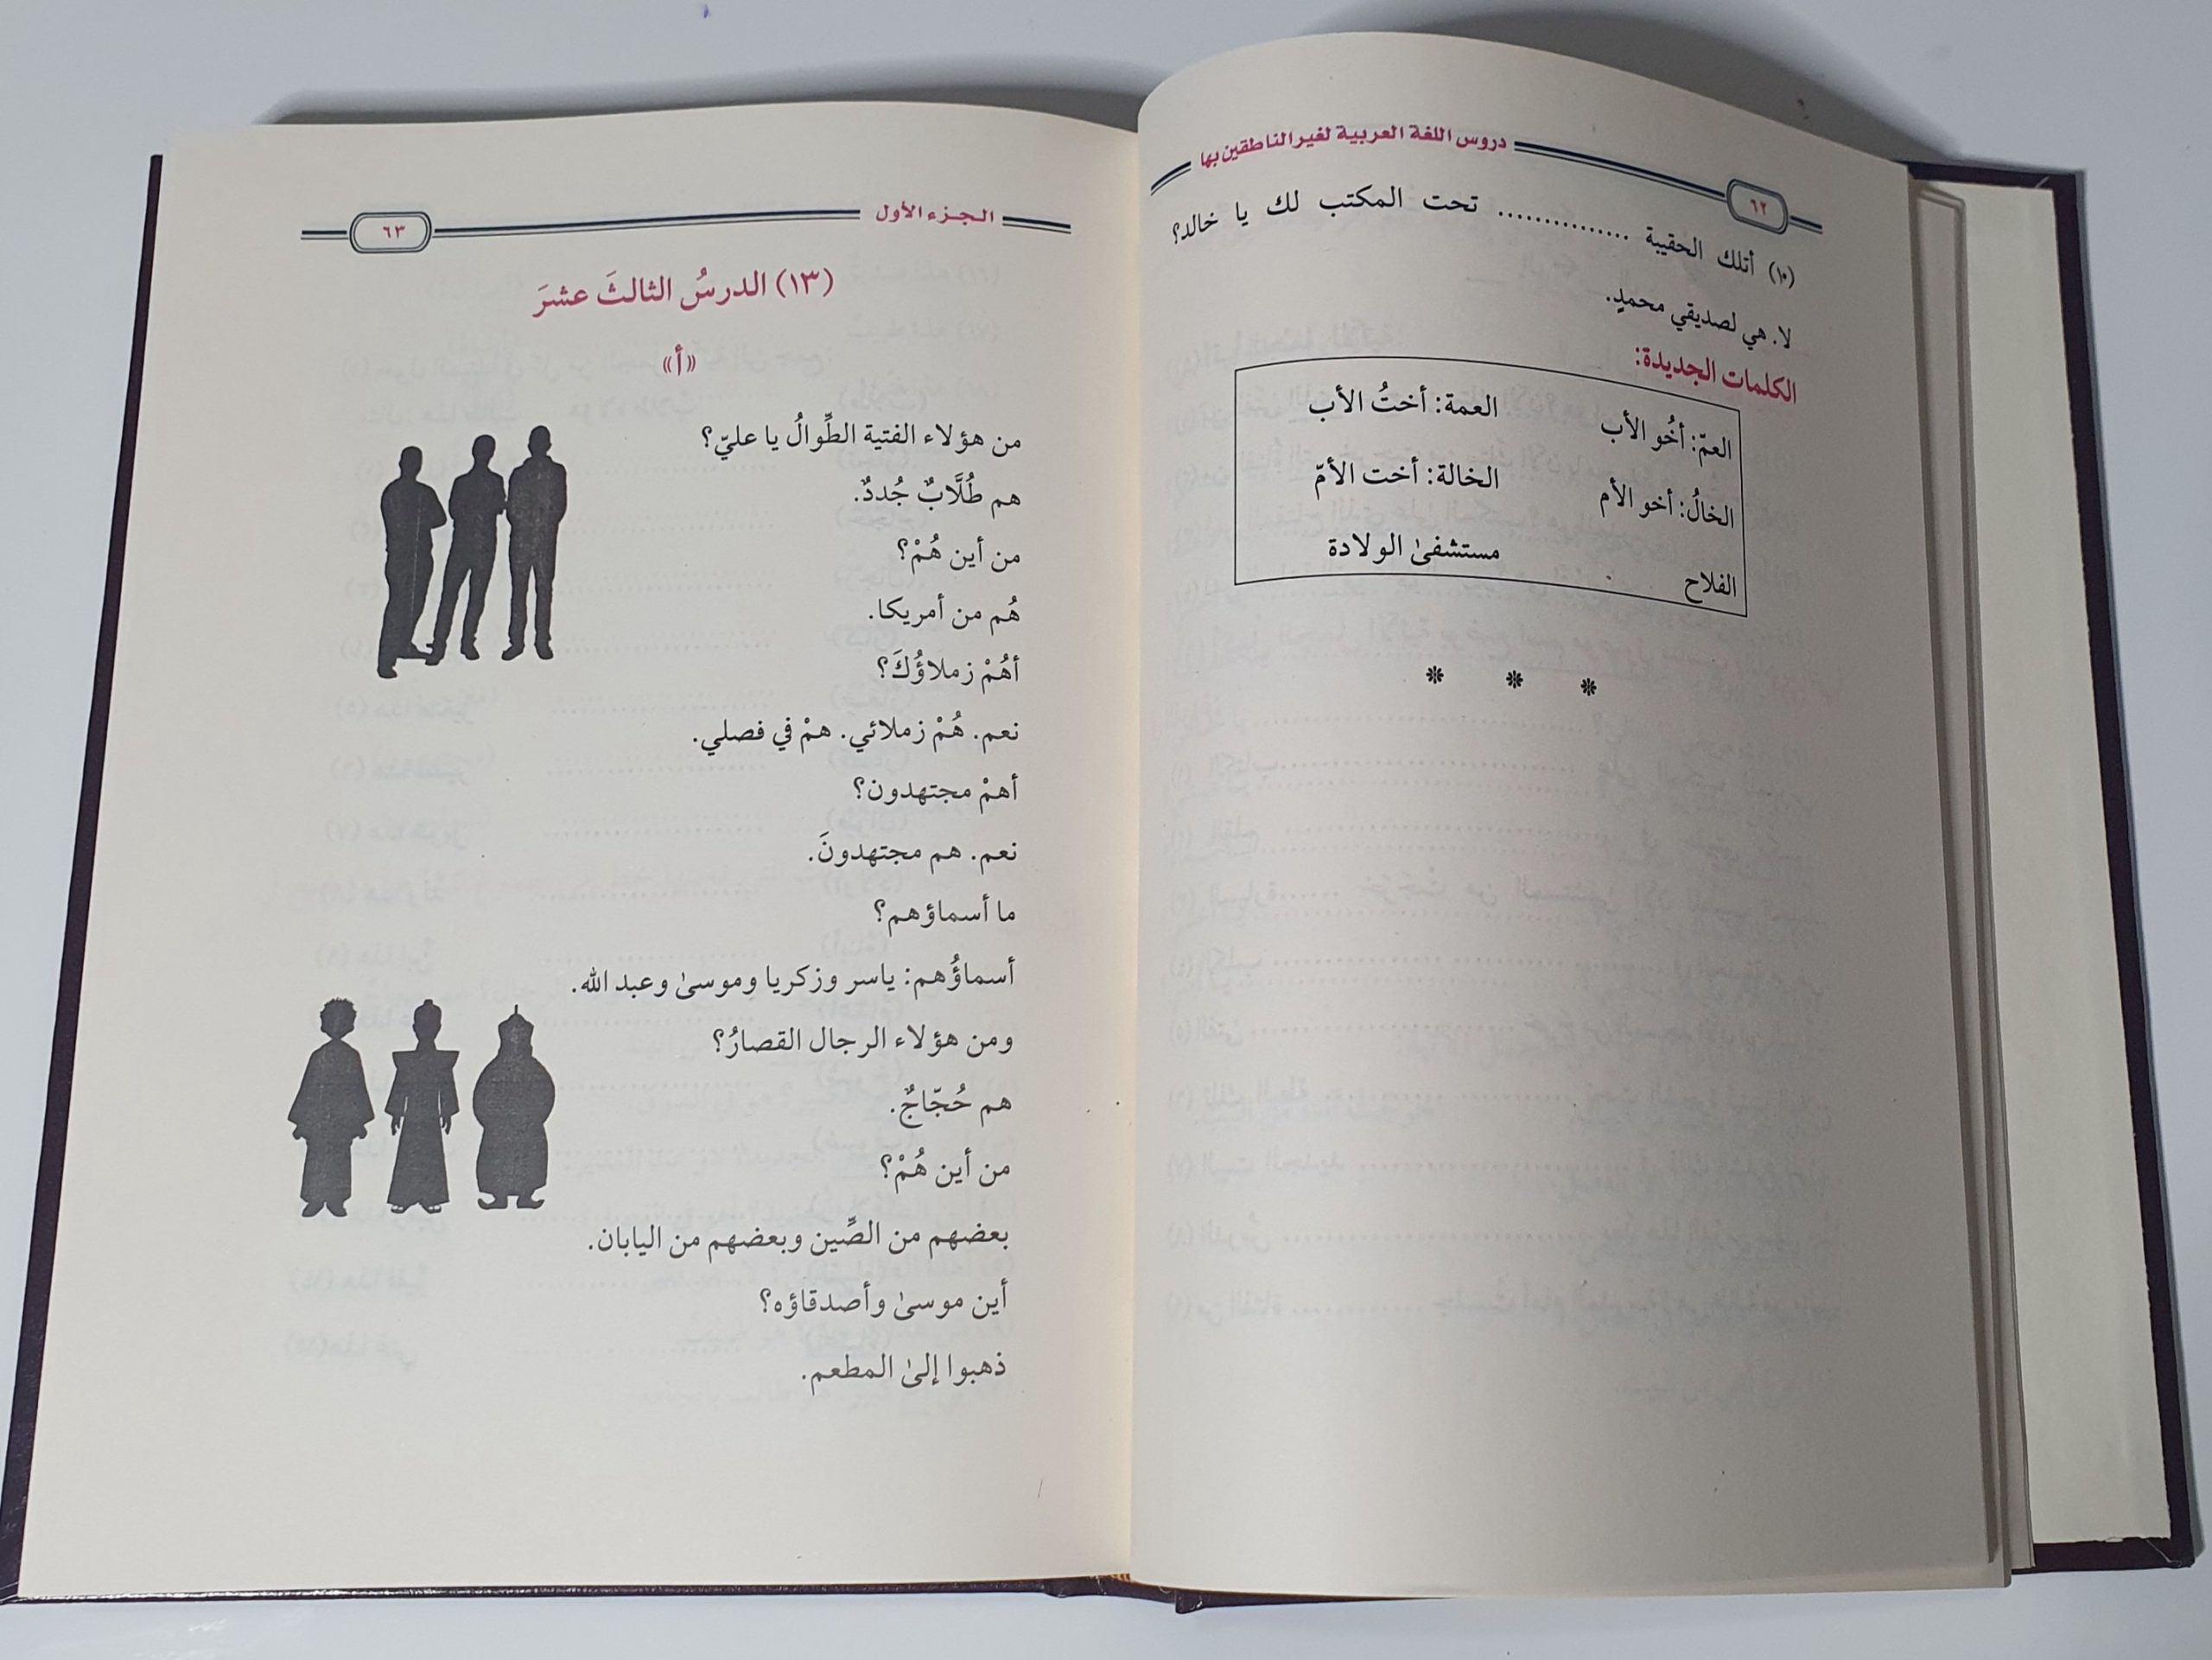 دروس اللغة العربية لغير الناطقين بها
٦٢
(١٠) أتلك الحقيبة ............... تحت المكتب لك يا خالد؟
لا. هي لصديقي محمدٍ.
الكلمات الجديدة:
العمّ: أخُو الأب العمة: أختُ الأب
الخالُ: أخو الأم الخالة: أخت الأمّ
الفلاح مستشفىٰ الولادة
* * *
الجزء الأول
٦٣
(١٣) الدرسُ الثالثَ عشرَ
«أ»
من هؤلاء الفتية الطِّوالُ يا عليّ؟
هم طُلَّابٌ جُددٌ.
من أين هُمْ؟
هُم من أمريكا.
أهُمْ زملاؤُكَ؟
نعم. هُمْ زملائي. همْ في فصلي.
أهمْ مجتهدون؟
نعم. هم مجتهدونَ.
ما أسماؤهم؟
أسماؤُهم: ياسر وزكريا وموسىٰ وعبد الله.
ومن هؤلاء الرجال القصارُ؟
هم حُجّاجٌ.
من أين هُمْ؟
بعضهم من الصِّين وبعضهم من اليابان.
أين موسىٰ وأصدقاؤه؟
ذهبوا إلىٰ المطعم.